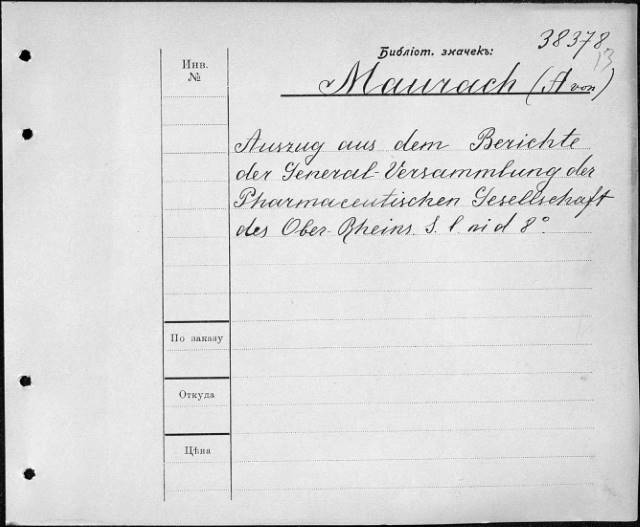 38378
13
Библіот. значекъ:
Инв.
№
Maurach (A von)
Auszug aus dem Berichte
der General-Versammlung der
Pharmaceutischen Gesellschaft
des Ober-Rheins. S. l ni d 8°.
По заказу
Откуда
Цѣна